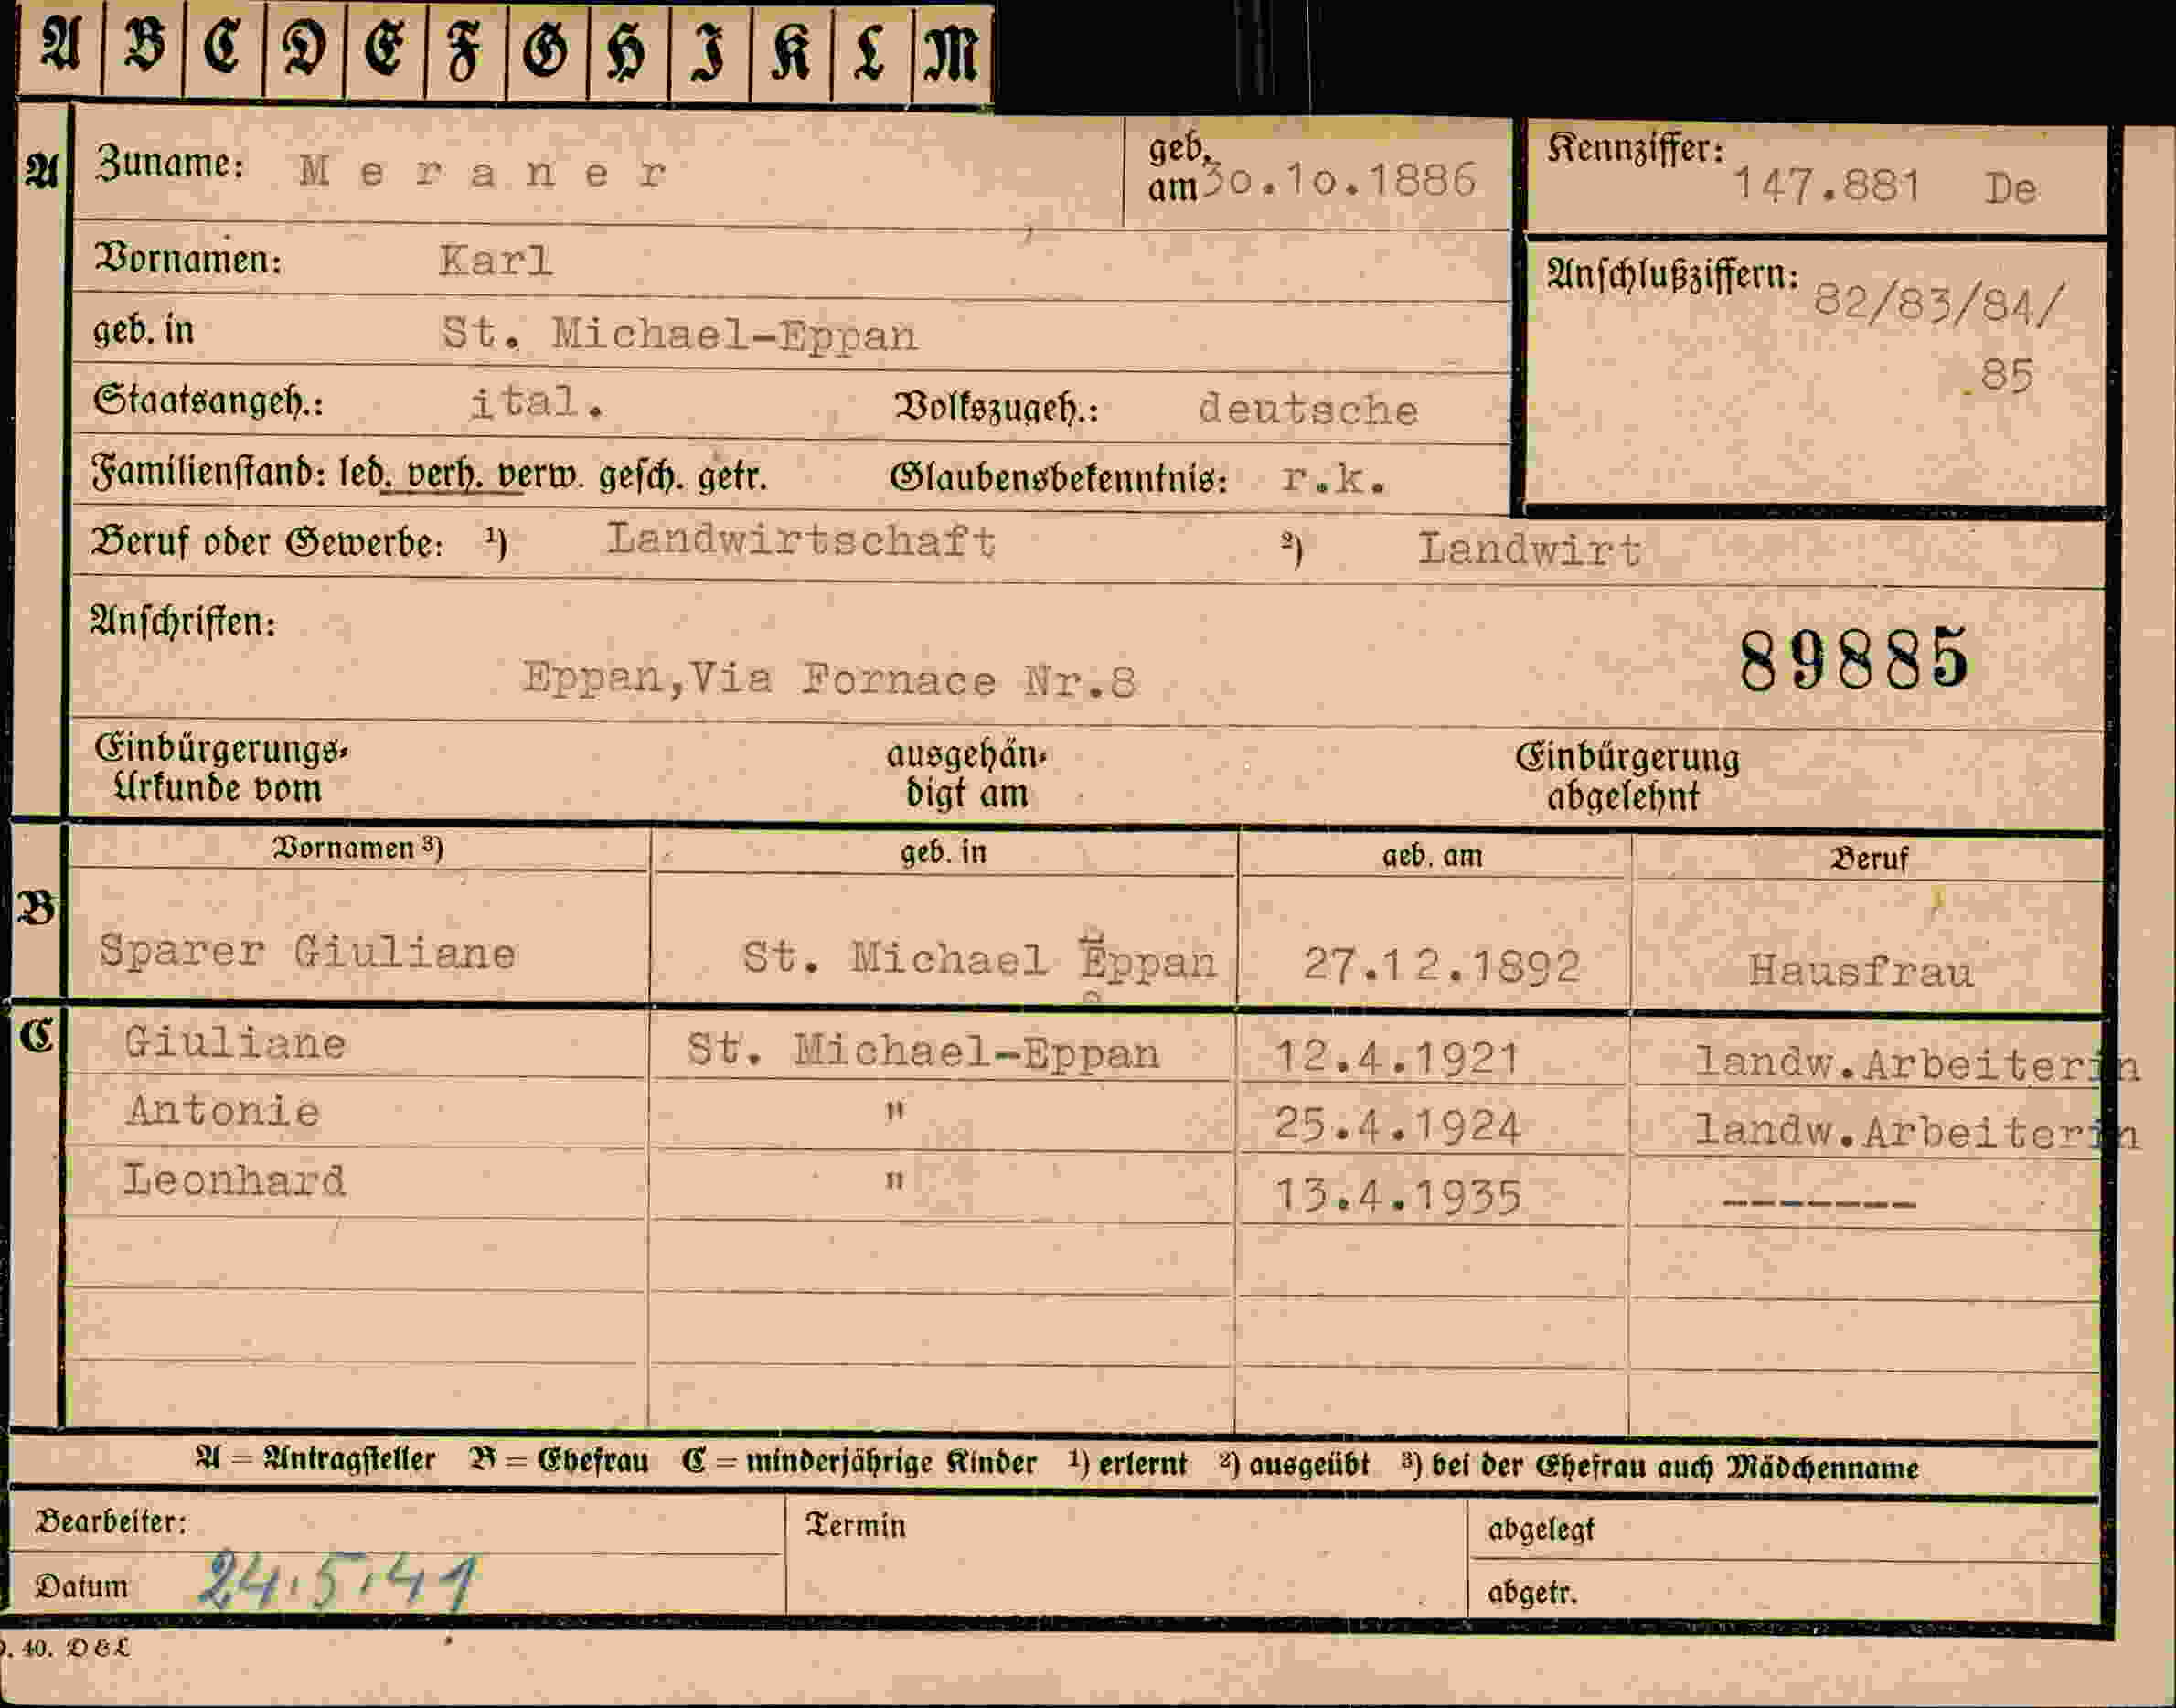 A B C D E F G H I K L M
A Zuname: Meraner geb. am 30.10.1886 Kennziffer: 147.881 De
Vornamen: Karl
Anschlußziffern: 82/83/84/
geb. in St. Michael-Eppan
85
Staatsangeh.: ital. Volkszugeh.: deutsche
Familienstand: led. verh. verw. gesch. getr. Glaubensbekenntnis: r.k.
Beruf oder Gewerbe: ¹) Landwirtschaft ²) Landwirt
Anschriften:
89885
Eppan,Via Fornace Nr.8
Einbürgerungs- ausgehän- Einbürgerung
Urkunde vom digt am abgelehnt
Vornamen ³) geb. in geb. am Beruf
B
Sparer Giuliane St. Michael Eppan 27.12.1892 Hausfrau
C Giuliane St. Michael-Eppan 12.4.1921 landw.Arbeiterin
Antonie " 25.4.1924 landw.Arbeiterin
Leonhard " 13.4.1935 -------
A = Antragsteller B = Ehefrau C = minderjährige Kinder ¹) erlernt ²) ausgeübt ³) bei der Ehefrau auch Mädchenname
Bearbeiter: Termin abgelegt
Datum 24.5.41 abgetr.
. 40. D & L